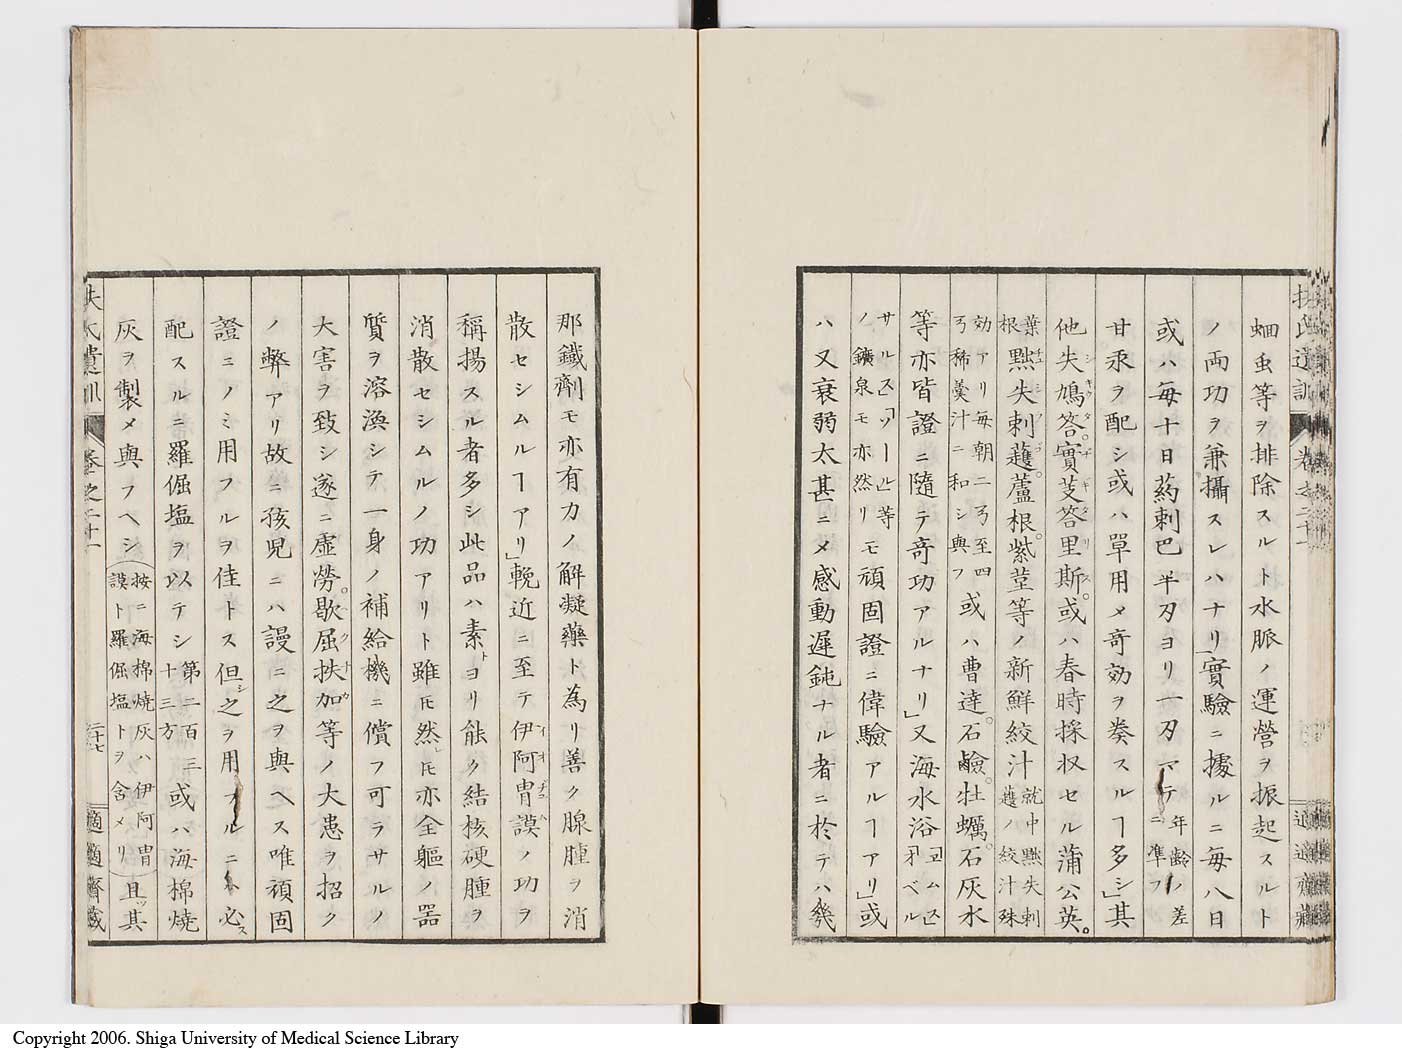 扶氏遺訓 卷之二十一 適適齋藏
蛔虫等ヲ排除スルト水脈ノ運營ヲ振起スルト
ノ両功ヲ兼攝スレハナリ」實驗ニ據ルニ每八日
或ハ每十日葯剌巴半刃ヨリ一刃マテ年齡ノ差ニ準フ
甘汞ヲ配シ或ハ單用メ奇効ヲ奏スルヿ多シ」其
他失鳩答。實芰答里斯。或ハ春時採収セル蒲公英。
葉根㸃失剌護。蘆根。紫莖等ノ新鮮絞汁就中㸃失剌護ノ絞汁殊
効アリ每朝二弓至四弓稀羹汁ニ和シ與フ或ハ曹達。石鹼。牡蠣。石灰水
等亦皆證ニ隨テ奇功アルナリ」又海水浴
ノ鑛泉モ亦然リモ頑固證ニ偉驗アルヿアリ」或
ハ又衰弱太甚ニメ感動遲鈍ナル者ニ於テハ幾
那鐵劑モ亦有力ノ解凝藥ト為リ善ク腺腫ヲ消
散セシムルヿアリ」輓近ニ至テ伊阿冑謨ノ功ヲ
稱揚スル者多シ此品ハ素トヨリ能ク結核硬腫ヲ
消散セシムルノ功アリト雖氏然レ氏亦全軀ノ器
質ヲ溶渙シテ一身ノ補給機ニ償フ可ラサルノ
大害ヲ致シ遂ニ虛勞。歇屈扶加等ノ大患ヲ招ク
ノ弊アリ故ニ孩兒ニハ謾ニ之ヲ與ヘス唯頑固
證ニノミ用フルヲ佳トス但シ之ヲ用フルニハ必ス
配スルニ羅倔塩ヲ以テシ第二百三十三方或ハ海棉燒
灰ヲ製メ與フヘシ按ニ海棉燒灰ハ伊阿冑謨ト羅倔塩トヲ含メリ且ツ其
扶氏遺訓 卷之二十一 二十七 適適齋藏
Copyright 2006. Shiga University of Medical Science Library